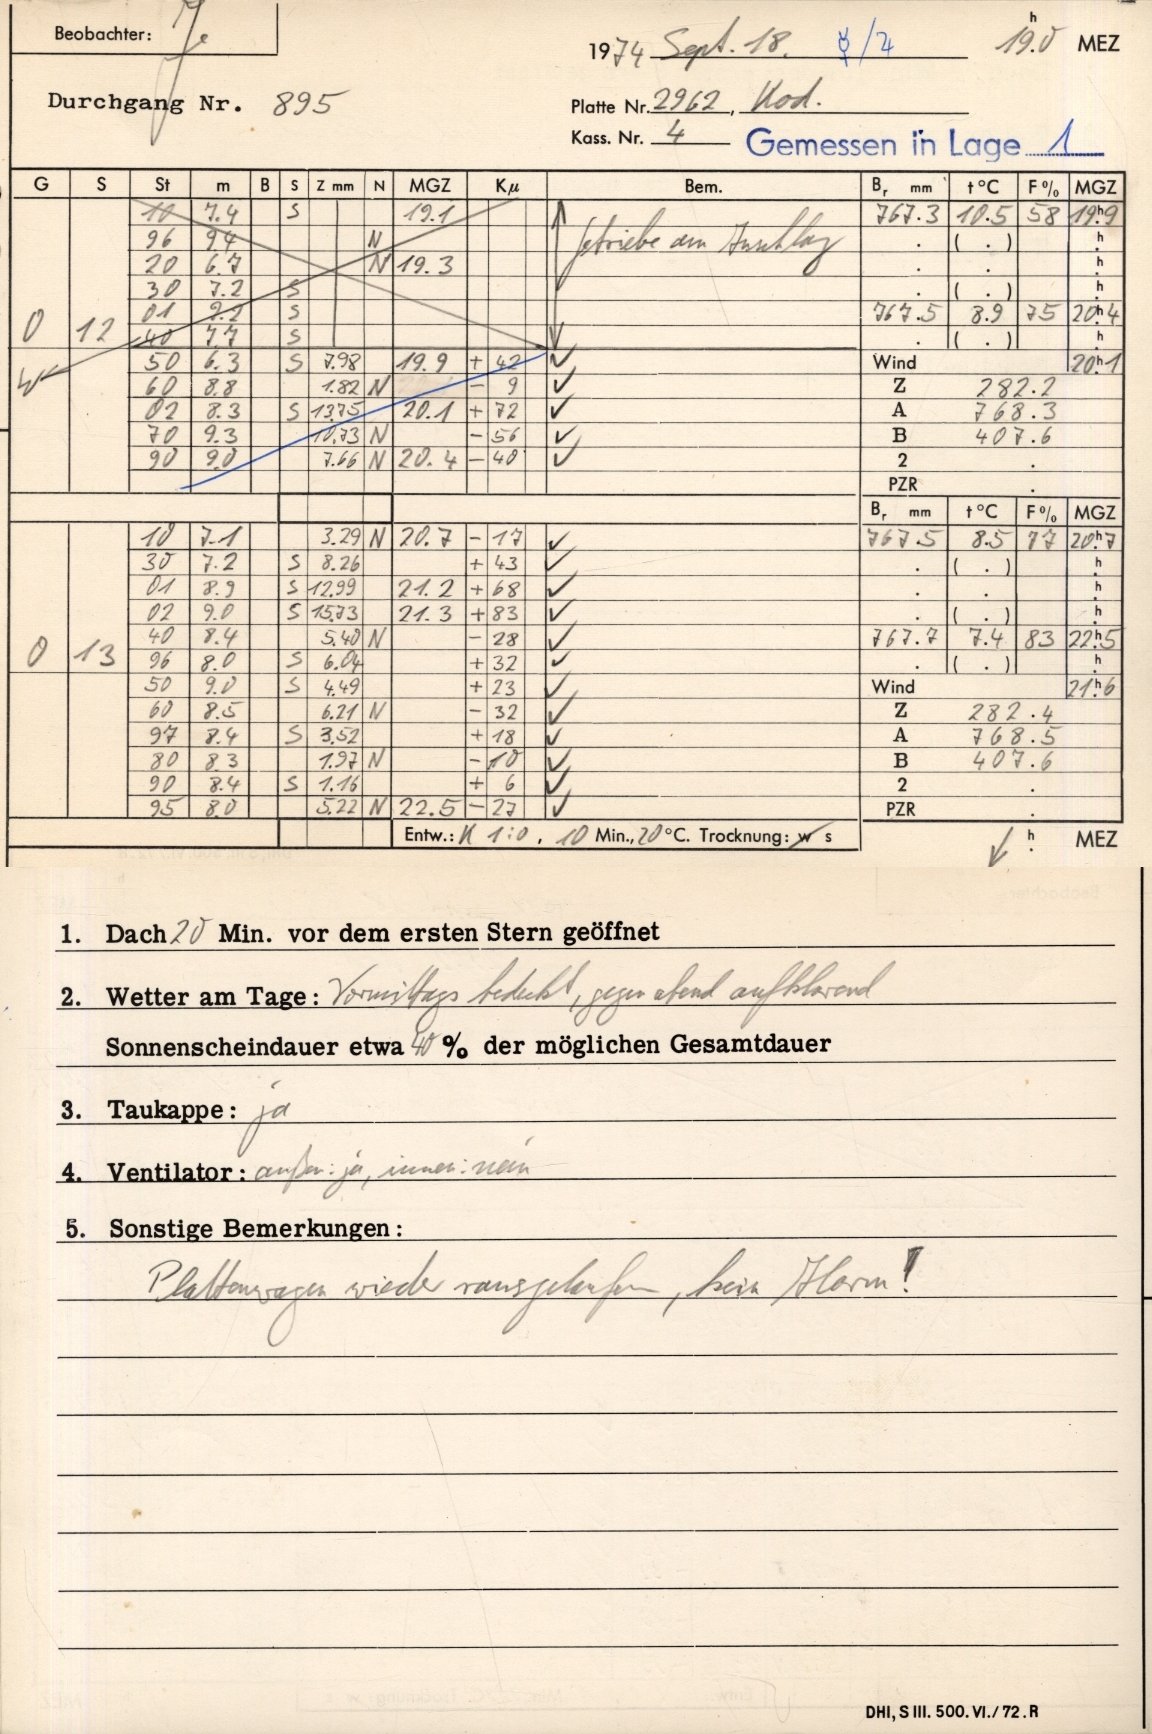 Beobachter: Je
1974 Sept. 18. ☿/♃ 19h.0 MEZ
Durchgang Nr. 895
Platte Nr. 2962, Kod.
Kass. Nr. 4 Gemessen in Lage 1
G S St m B S Z mm N MGZ Kμ Bem. Br mm t°C F% MGZ
10 7.4 S 19.1 Getriebe am Anschlag 767.3 10.5 58 19h9
96 9.4 N . ( . ) h.
20 6.7 N 19.3 . . h.
30 7.2 S . ( . ) h.
01 9.2 S 767.5 8.9 75 20h4
0 12 40 7.7 S . ( . ) h.
W 50 6.3 S 7.98 19.9 + 42 ✓ Wind 20h1
60 8.8 1.82 N - 9 ✓ Z 282.2
02 8.3 S 13.75 20.1 + 72 ✓ A 768.3
70 9.3 10.73 N - 56 ✓ B 407.6
90 9.0 7.66 N 20.4 - 40 ✓ 2 .
PZR .
Br mm t°C F% MGZ
10 7.1 3.29 N 20.7 - 17 ✓ 767.5 8.5 77 20h7
30 7.2 S 8.26 + 43 ✓ . ( . ) h.
01 8.9 S 12.99 21.2 + 68 ✓ . . h.
02 9.0 S 15.73 21.3 + 83 ✓ . ( . ) h.
40 8.4 5.40 N - 28 ✓ 767.7 7.4 83 22h5
0 13 96 8.0 S 6.04 + 32 ✓ . ( . ) h.
50 9.0 S 4.49 + 23 ✓ Wind 21h6
60 8.5 6.21 N - 32 ✓ Z 282.4
97 8.4 S 3.52 + 18 ✓ A 768.5
80 8.3 1.97 N - 10 ✓ B 407.6
90 8.4 S 1.16 + 6 ✓ 2 .
95 8.0 5.22 N 22.5 - 27 ✓ PZR .
Entw.: K 1:0, 10 Min., 20 °C. Trocknung: w s h. MEZ
1. Dach 20 Min. vor dem ersten Stern geöffnet
2. Wetter am Tage: Vormittags bedeckt, gegen abend aufklarend
Sonnenscheindauer etwa 40 % der möglichen Gesamtdauer
3. Taukappe: ja
4. Ventilator: außen: ja, innen: nein
5. Sonstige Bemerkungen:
Plattenwagen wieder rausgelaufen, kein Alarm!
DHI, S III. 500. VI./72. R